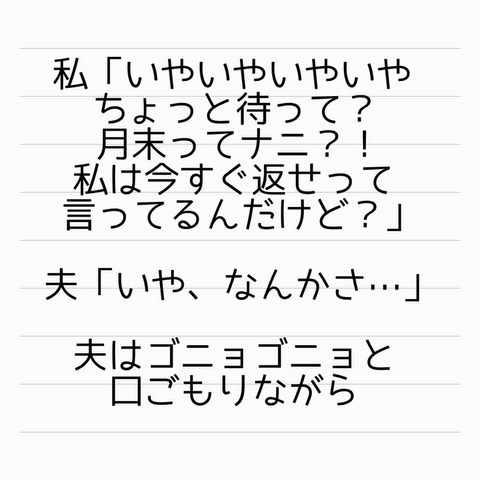 私「いやいやいやいや
ちょっと待って？
月末ってナニ？！
私は今すぐ返せって
言ってるんだけど？」
夫「いや、なんかさ…」
夫はゴニョゴニョと
口ごもりながら